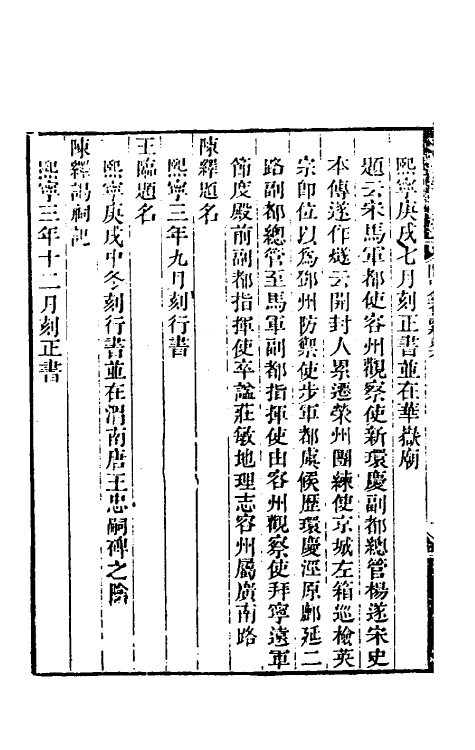 熙寧庚戌七月刻正書並在華嶽廟
題云宋馬軍都使容州觀察使新環慶副都總管楊遂宋史
本傳遂作燧云開封人累遷榮州團練使京城左箱巡檢英
宗卽位以爲鄧州防禦使步軍都虞候歷環慶涇原鄜延二
路副都總管至馬軍副都指揮使由容州觀察使拜寧遠軍
節度殿前副都指揮使卒諡莊敏地理志容州屬廣南路
陳繹題名
熙寧三年九月刻行書
王臨題名
熙寧庚戌中冬刻行書並在渭南唐王忠嗣碑之陰
陳繹謁祠記
熙寧三年十二月刻正書